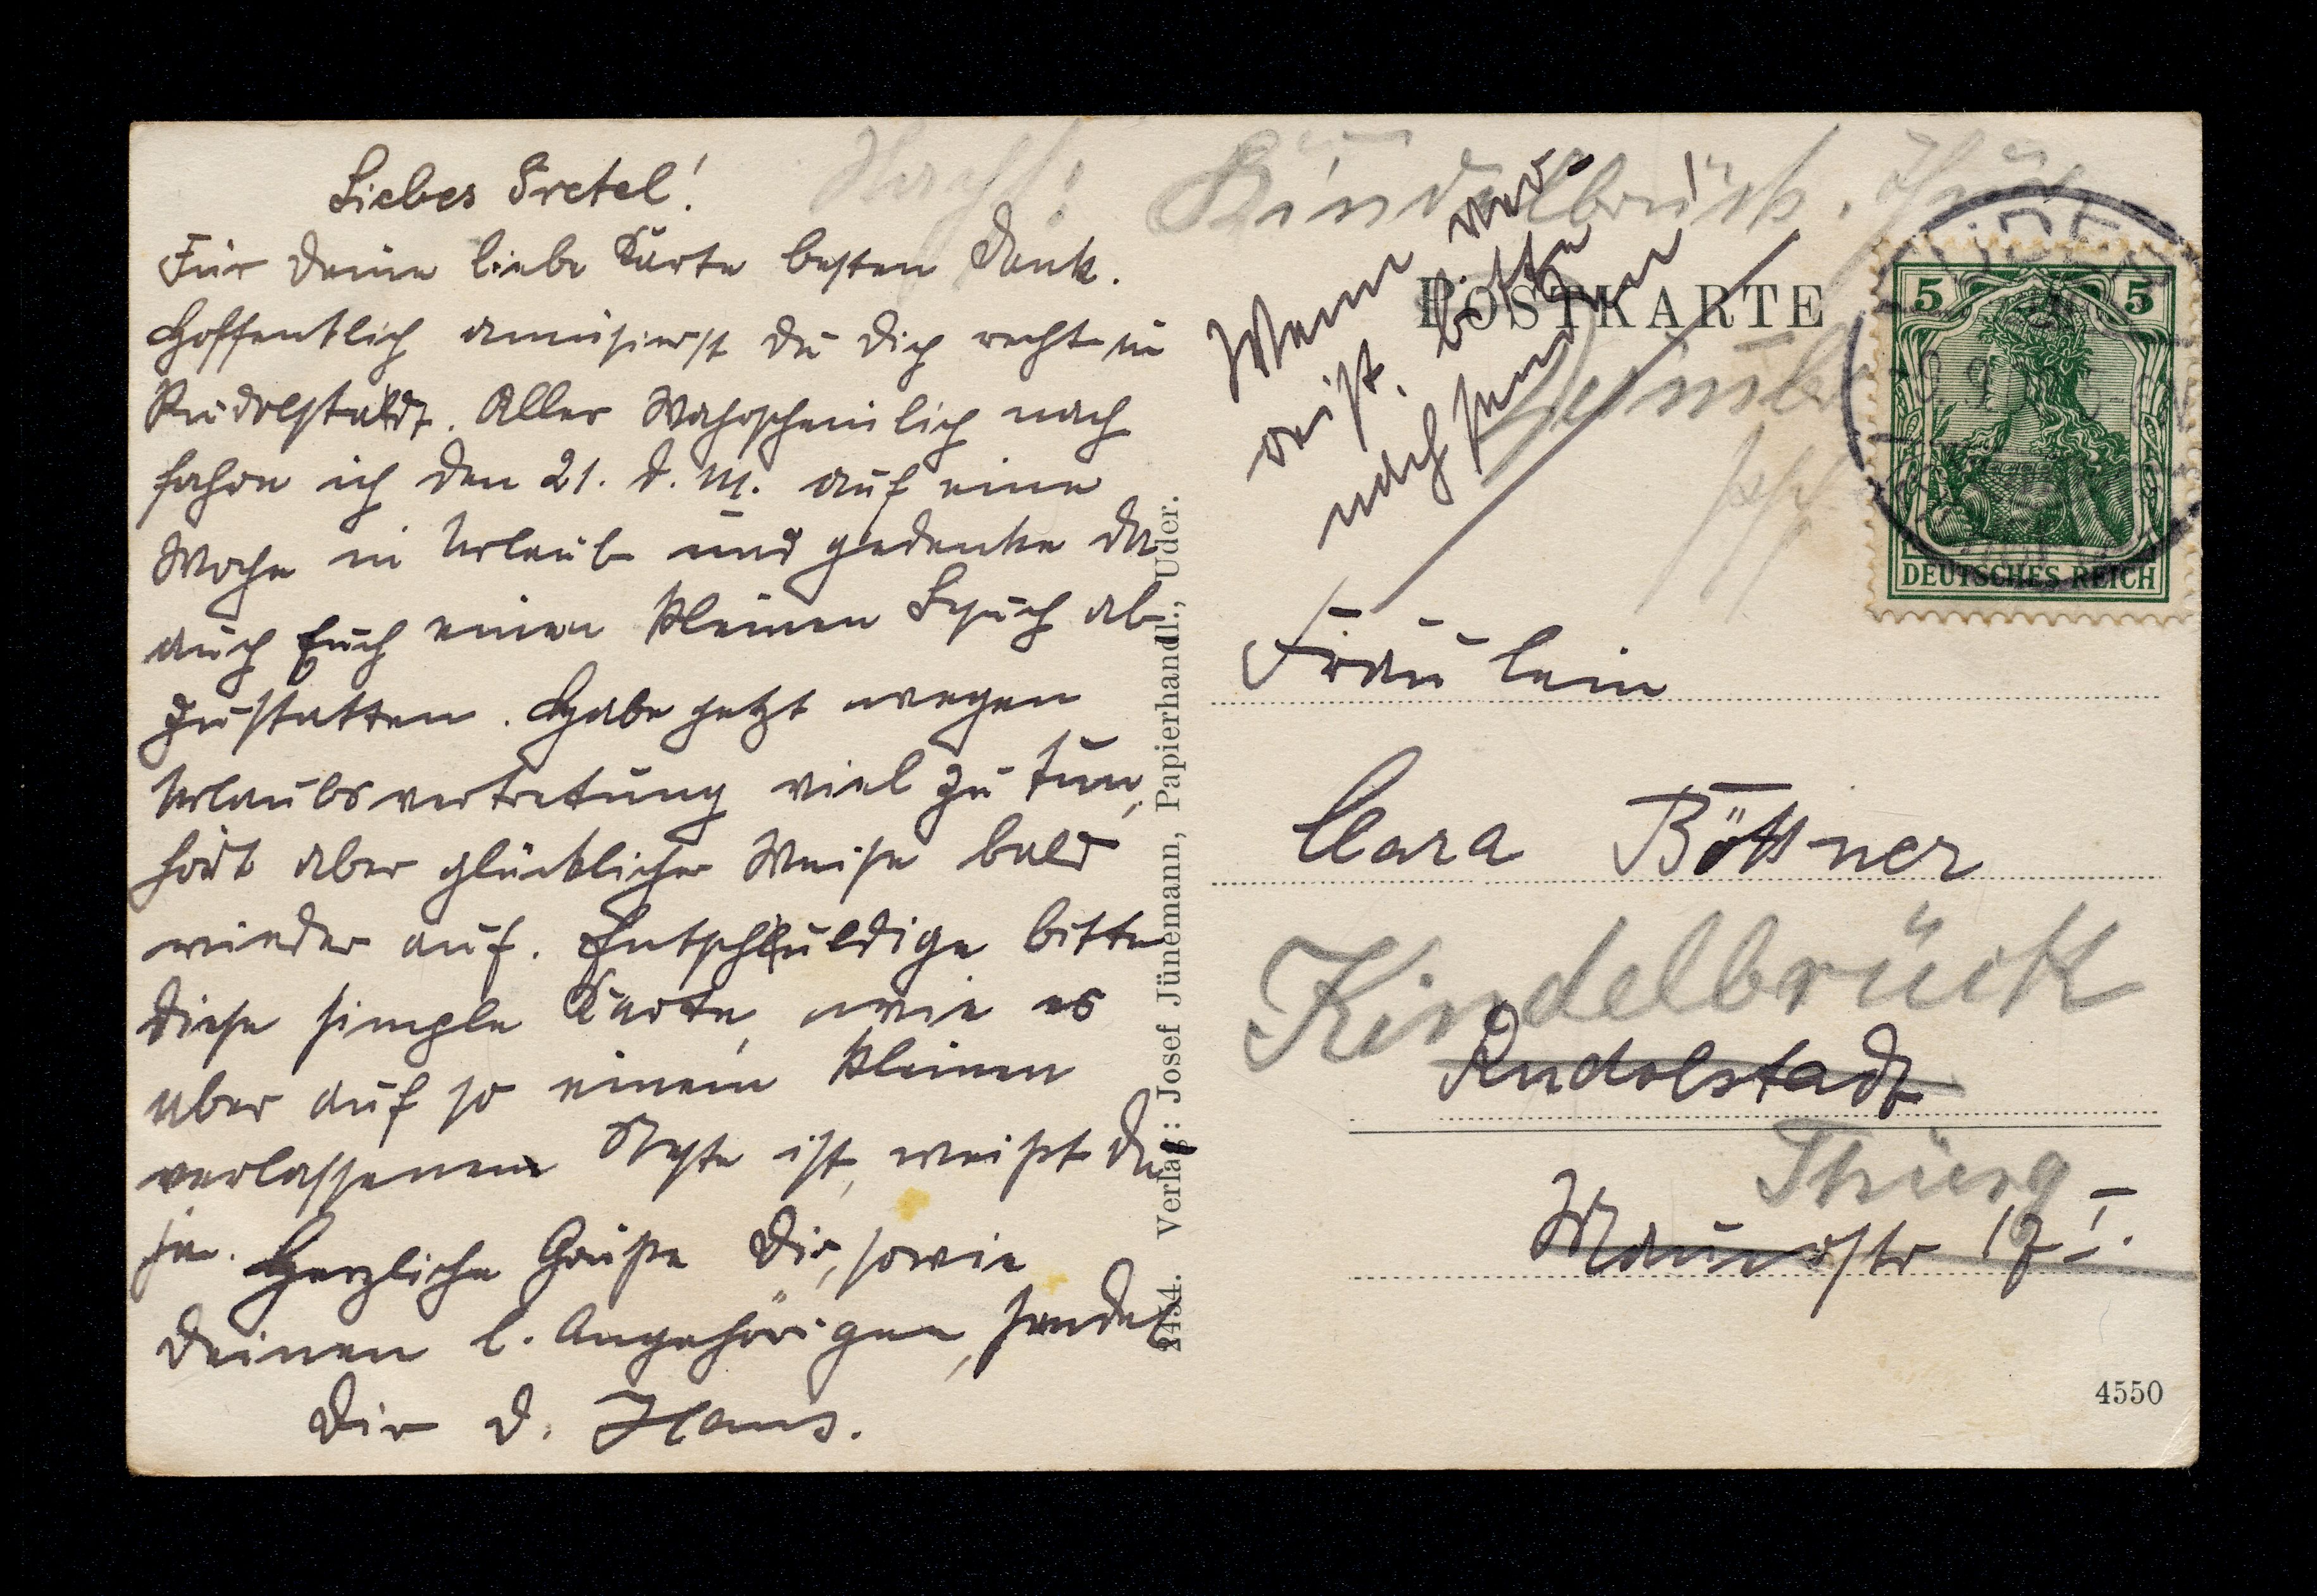 Liebes Gretel!
Für Deine liebe Karte besten Dank.
Hoffentlich amüsierst Du Dich recht in
Rudolstaldt. Aller Wahrscheinlich nach
fahre ich den 21. d. M. auf eine
Woche in Urlaub und gedenke da
auch Euch einen kleinen Besuch ab-
zustatten. Habe jetzt wegen
Urlaubsvertretung viel zu tun,
hört aber glücklicher Weise bald
wieder auf. Entschuldige bitte
diese simple Karte, wie es
aber auf so einem kleinen
verlassenen Neste ist, weißt Du
ja. Herzliche Grüße Dir, sowie
Deinen l. Angehörigen, sendet
Dir D. Hans.
2454. Verlag: Josef Jünemann, Papierhandl., Uder.
Kindelbrück. Thür
Wenn ver
reist, bitte
nachsenden!
POSTKARTE
5 5
DEUTSCHES REICH
Fräulein
Clara Böttner
Kindelbrück
Rudolstadt
Thürg
Mauerstr 17 I.
4550